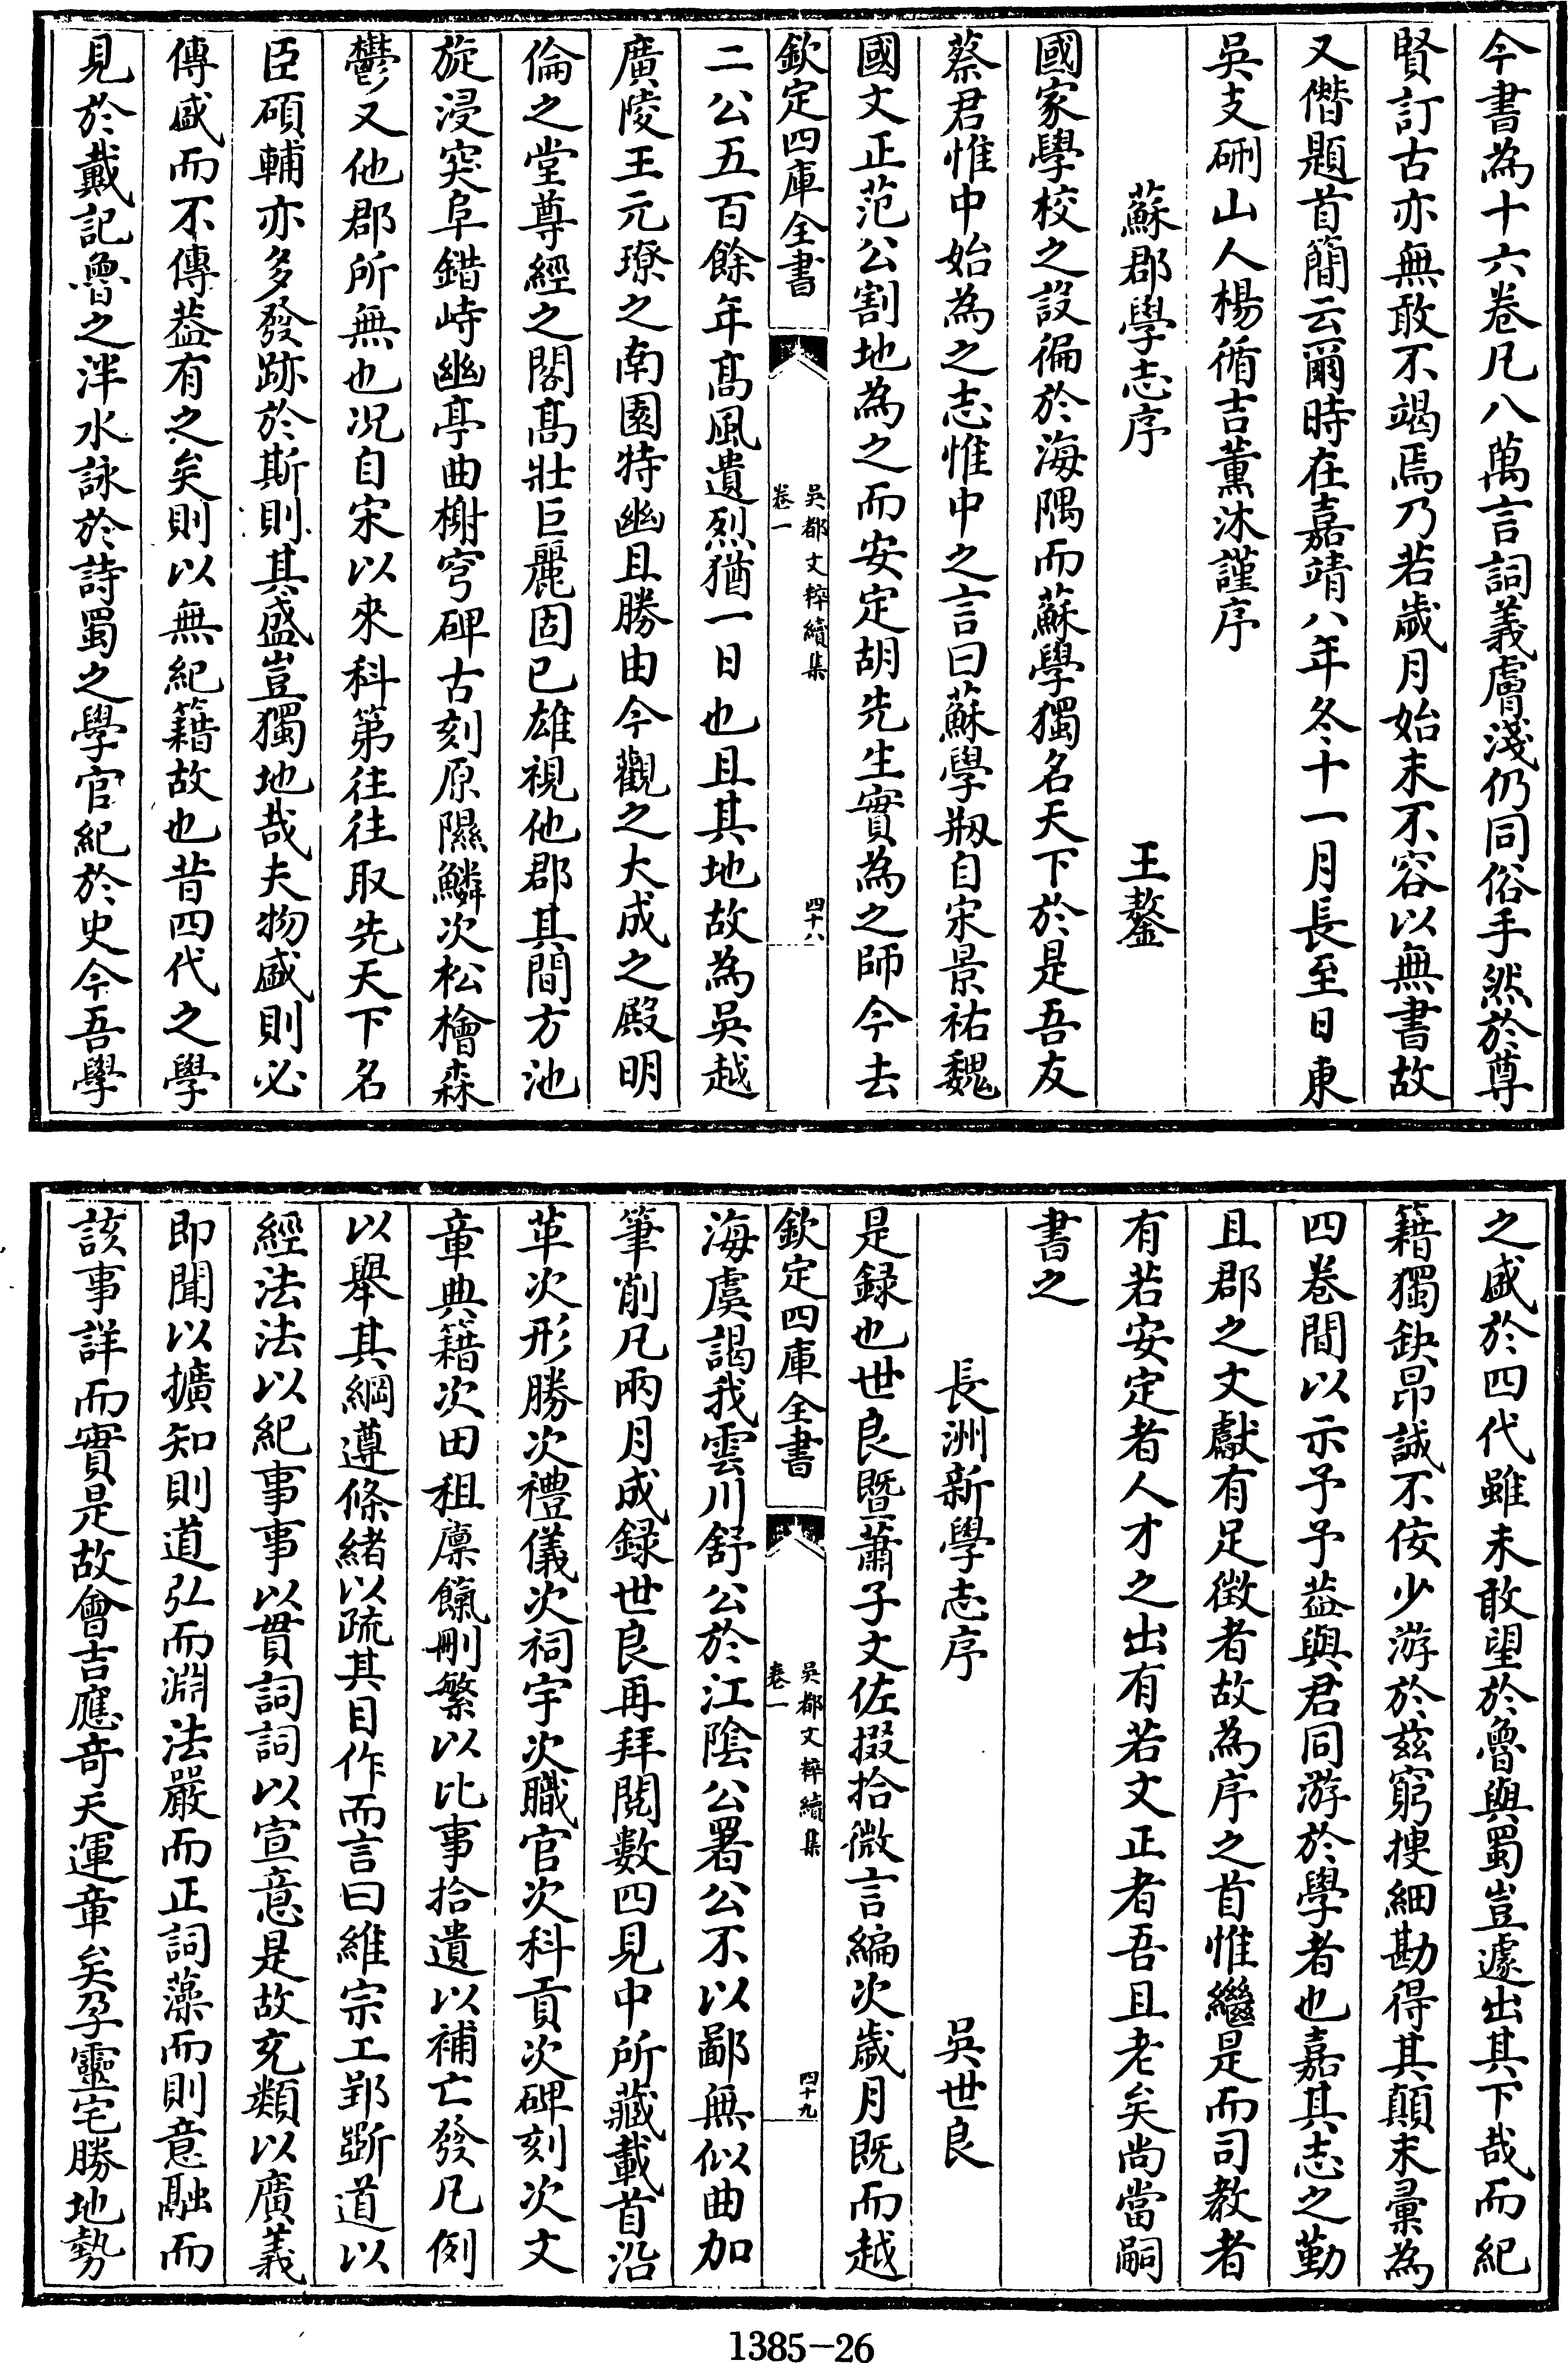 今書為十六卷凡八萬言詞義膚淺仍同俗手然於尊
賢訂古亦無敢不竭焉乃若歲月始末不容以無書故
又僭題首簡云爾時在嘉靖八年冬十一月長至日東
吳支硎山人楊循吉薰沐謹序
蘇郡學志序　王鏊
國家學校之設徧於海隅而蘇學獨名天下於是吾友
蔡君惟中始為之志惟中之言曰蘇學剏自宋景祐魏
國文正范公割地為之而安定胡先生實為之師今去
欽定四庫全書　吳都文粹續集　卷一　四十八
二公五百餘年髙風遺烈猶一日也且其地故為吳越
廣陵王元璙之南園特幽且勝由今觀之大成之殿明
倫之堂尊經之閣髙壯巨麗固已雄視他郡其間方池
旋浸突阜錯峙幽亭曲榭穹碑古刻原隰鱗次松檜森
鬱又他郡所無也况自宋以來科第往往取先天下名
臣碩輔亦多發跡於斯則其盛豈獨地哉夫物盛則必
傳盛而不傳葢有之矣則以無紀籍故也昔四代之學
見於戴記魯之泮水詠於詩蜀之學官紀於史今吾學
之盛於四代雖未敢望於魯與蜀豈遽出其下哉而紀
籍獨缺昂誠不佞少游於兹窮捜細勘得其顛末彚為
四卷間以示予予葢與君同游於學者也嘉其志之勤
且郡之文獻有足徴者故為序之首惟繼是而司教者
有若安定者人才之出有若文正者吾且老矣尚當嗣
書之
長洲新學志序　吳世良
是録也世良暨蕭子文佐掇拾微言編次歲月既而越
欽定四庫全書　吳都文粹續集　卷一　四十九
海虞謁我雲川舒公於江隂公署公不以鄙無似曲加
筆削凡兩月成録世良再拜閱數四見中所藏載首沿
革次形勝次禮儀次祠宇次職官次科貢次碑刻次文
章典籍次田租廪餼刪繁以比事拾遺以補亡發凡例
以舉其綱遵條緒以疏其目作而言曰維宗工郢斲道以
經法法以紀事事以貫詞詞以宣意是故充類以廣義
即聞以擴知則道弘而淵法嚴而正詞藻而則意融而
該事詳而實是故會吉應竒天運章矣孕靈宅勝地勢
1385-26